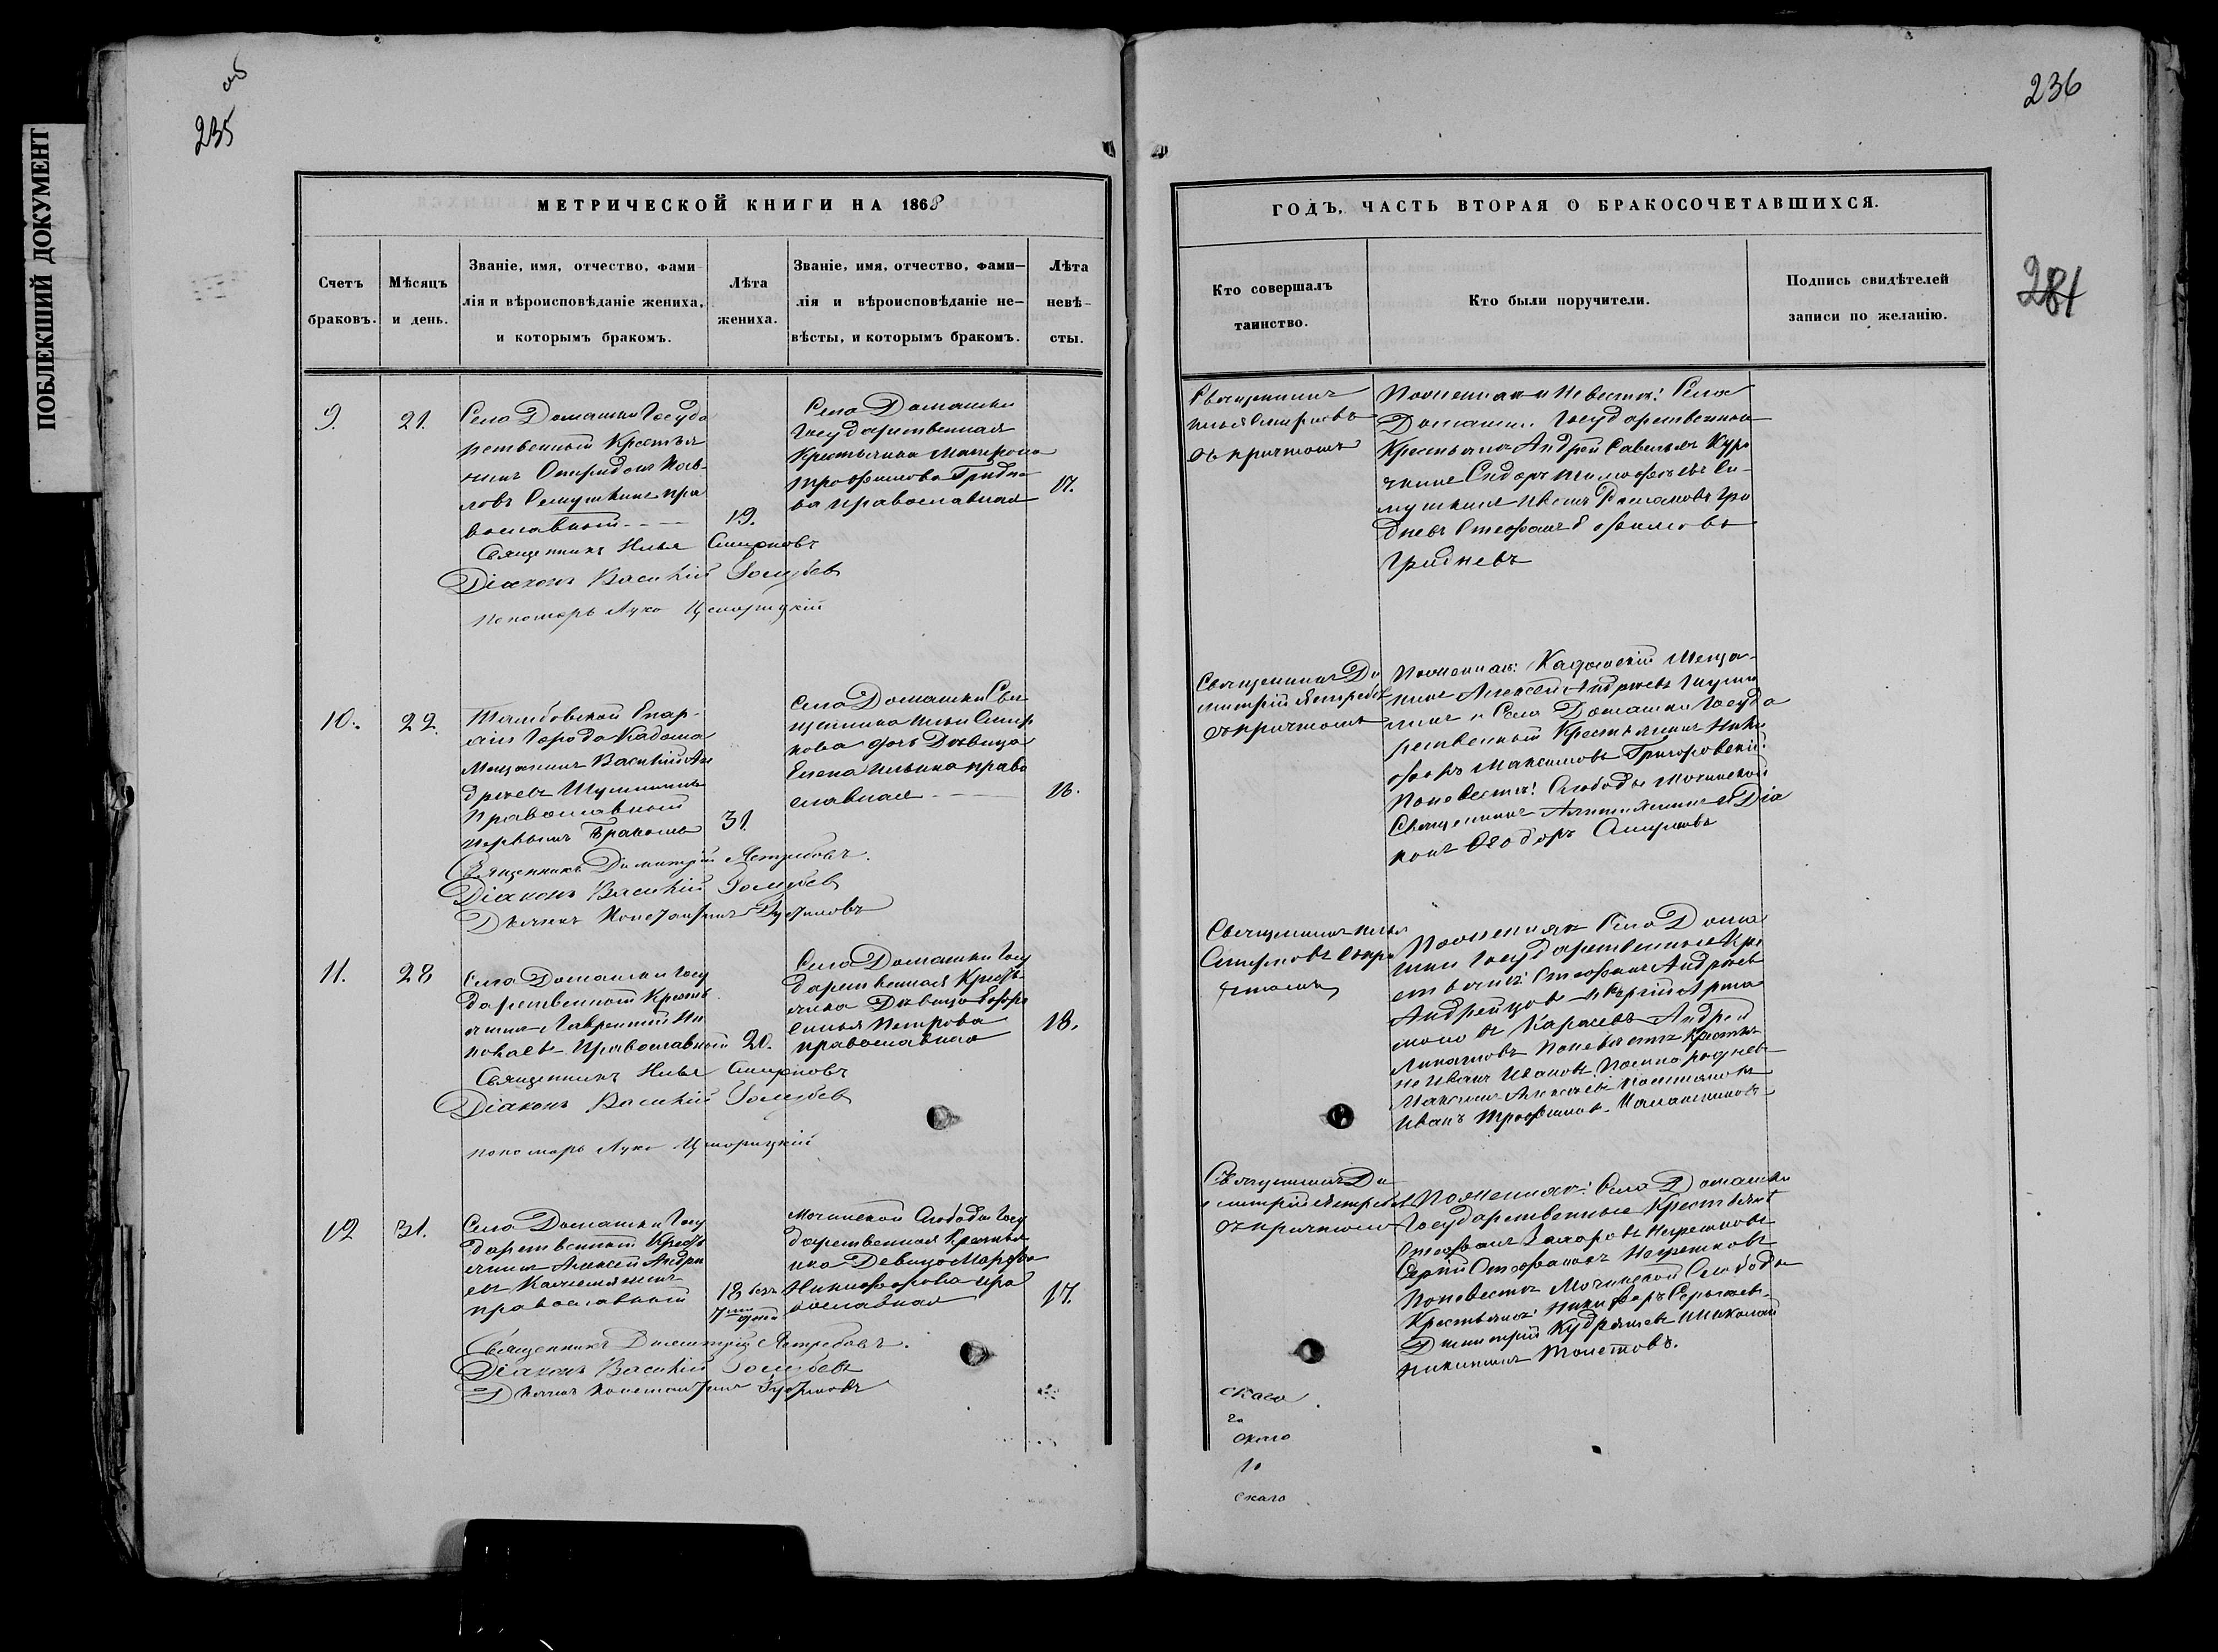 ПОБЛЕКШИЙ ДОКУМЕНТ
235
об
МЕТРИЧЕСКОЙ КНИГИ НА 1868
Счетъ браковъ.
Мѣсяцъ и день.
Званіе, имя, отчество, фами-
лія и вѣроисповѣданіе жениха,
и которымъ бракомъ.
Лѣта жениха.
Званіе, имя, отчество, фами-
лія и вѣроисповѣданіе не-
вѣсты, и которымъ бракомъ.
Лѣта невѣ-
сты.
9.
21.
Села Домашки Госуда
рственный Крестья
нинъ Спиридонъ Пав-
ловъ Семушкинъ пра
вославный
19.
Села Домашки
Государственная
Крестьянка Матрона
Трофимова Гридне
ва православная
17.
Священникъ Илья Смирновъ
Діаконъ Василій Голубев
Пономарь Лука
10.
22.
Тамбовской Епар-
хіи Города Кадома
Мещанинъ Василій Ан
дреевъ Шушпановъ
Православный
первымъ бракомъ
31.
Села Домашки Свя
щенника Ильи Смир
нова дочь Девица
Елена Ильина право
славная
18.
Священникъ Димитрій Ястребовъ.
Діаконъ Василій Голубев
Дьячекъ Константинъ
11.
28
Села Домашки Госу
дарственный Кресть
янинъ Лаврентий
православный
20.
Села Домашки Госу
дарственная Кресть
янка Девица Евфро
синья Петрова
православная
18.
Священникъ Илья Смирновъ
Діаконъ Василій Голубев
Пономарь Лука
12
31.
Села Домашки Госу
дарственный Кресть
янинъ Алексей Андре
евъ
православный
18 безъ
7ми дней
Мочинской Слободы Госу
дарственная Крестья
нка Девица Марфа
Никифорова пра
вославная
17.
Священникъ Димитрій Ястребовъ.
Діаконъ Василій Голубевъ
Дьячекъ Константинъ
236
281
ГОДЪ, ЧАСТЬ ВТОРАЯ О БРАКОСОЧЕТАВШИХСЯ.
Кто совершалъ таинство.
Кто были поручители.
Подпись свидѣтелей
записи по желанію.
Священникъ
Илья Смирновъ
съ причтомъ
По женихе и Невесте: Села
Домашки Государственные
Крестьяне Андрей Савельев
Сидоръ Тимофеевъ Се-
мушкинъ Иванъ Романовъ Гри
дневъ Стефанъ
Гридневъ
Священникъ Ди
митрій Ястребов
съ причтомъ
По женихе: Кадомскій Меща-
нинъ Алексей Андреевъ
и Села Домашки Госуда
рственный Крестьянинъ Ники
форъ Максимовъ Григоровскій:
По невесте: Слободы Мочинской
Священникъ и Діа
конъ Ѳеодоръ Смирновъ
Священникъ Илья
Смирновъ съ при
чтомъ
По женихе Села Дома
шки Государственные Кре
стьяне: Стефанъ Андреев
Андрейцов
Карасевъ Андрей
По невесте Крестья
не Иванъ Ивановъ
Максимъ Алексеев
Иванъ Трофимов
Священникъ Ди
митрій Ястребов
съ причтомъ
По женихе: Села Домашки
Государственные Крестьяне
Стефанъ Захаровъ
Сергій Стефановъ
По невесте Мочинской Слободы
Крестьяне: Никифоръ
Димитрій Кудряшев и Николай
Никитинъ
скаго
го
скаго
го
скаго